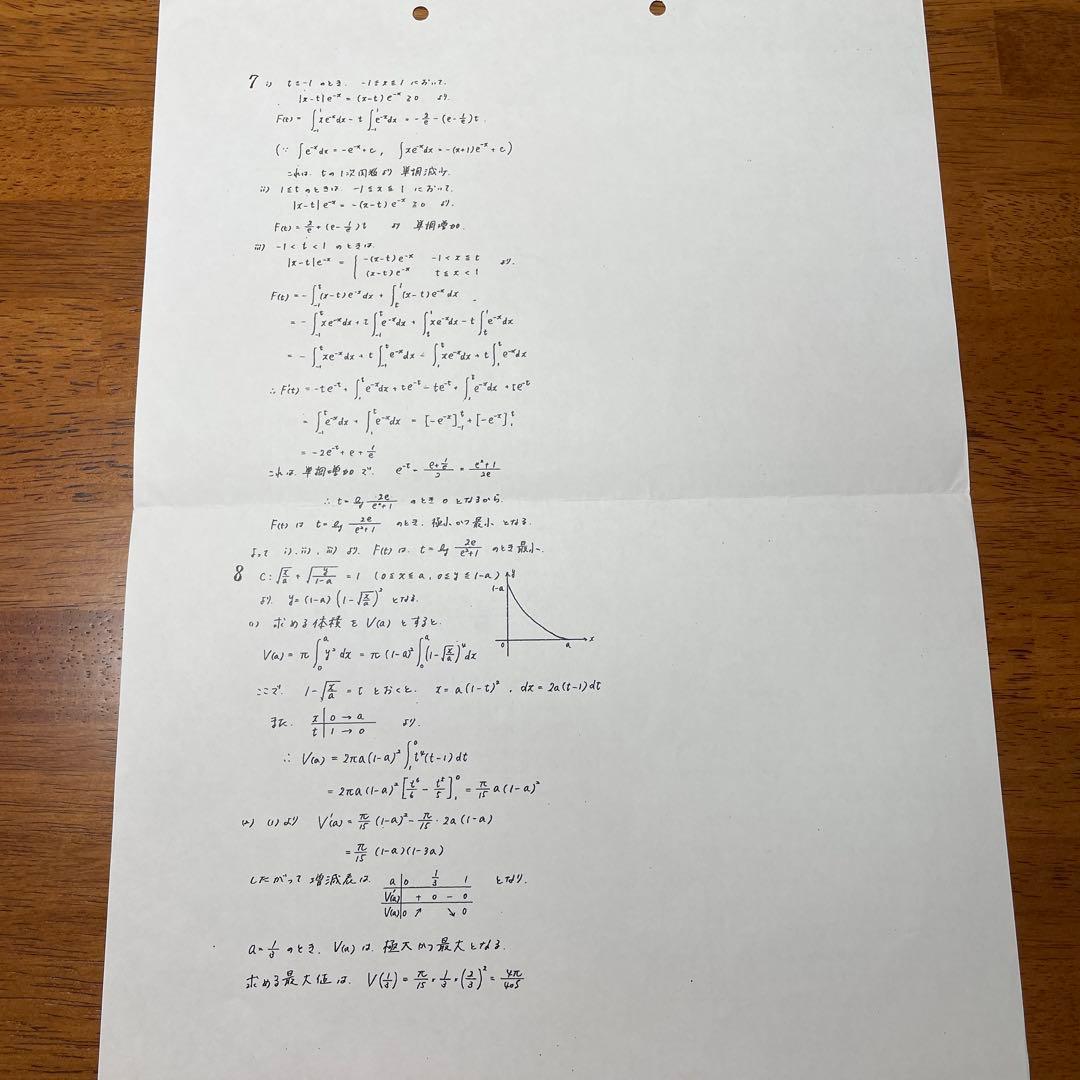 7 i) t≦-1 のとき. -1≦x≦1 において.
|x-t|e^{-x} = (x-t)e^{-x} ≧0 より.
F(t) = ∫_{-1}^{1} xe^{-x}dx - t∫_{-1}^{1} e^{-x}dx = -2/e - (e - 1/e)t.
(∵ ∫e^{-x}dx = -e^{-x}+c, ∫xe^{-x}dx = -(x+1)e^{-x}+c)
これは. tの1次関数より 単調減少.
ii) 1≦tのときは. -1≦x≦1 において.
|x-t|e^{-x} = -(x-t)e^{-x} ≧0 より.
F(t) = 2/e + (e - 1/e)t より 単調増加.
iii) -1<t<1 のときは.
|x-t|e^{-x} = { -(x-t)e^{-x} -1<x≦t
(x-t)e^{-x} t≦x<1 より.
F(t) = -∫_{-1}^{t} (x-t)e^{-x}dx + ∫_{t}^{1} (x-t)e^{-x}dx
= -∫_{-1}^{t} xe^{-x}dx + t∫_{-1}^{t} e^{-x}dx + ∫_{t}^{1} xe^{-x}dx - t∫_{t}^{1} e^{-x}dx
= -∫_{-1}^{t} xe^{-x}dx + t∫_{-1}^{t} e^{-x}dx - ∫_{1}^{t} xe^{-x}dx + t∫_{1}^{t} e^{-x}dx
∴ F'(t) = -te^{-t} + ∫_{-1}^{t} e^{-x}dx + te^{-t} - te^{-t} + ∫_{1}^{t} e^{-x}dx + te^{-t}
= ∫_{-1}^{t} e^{-x}dx + ∫_{1}^{t} e^{-x}dx = [-e^{-x}]_{-1}^{t} + [-e^{-x}]_{1}^{t}
= -2e^{-t} + e + 1/e
これは. 単調増加で. e^{-t} = (e+1/e)/2 = (e²+1)/2e
∴ t = log 2e/(e²+1) のとき 0 となるから.
F(t) は t = log 2e/(e²+1) のとき. 極小かつ最小となる.
よって i), ii), iii) より. F(t)は. t = log 2e/(e²+1) のとき最小.
8 C: √(x/a) + √(y/(1-a)) = 1 (0≦x≦a, 0≦y≦1-a)
y
1-a
0 a x
より. y = (1-a)(1-√(x/a))² となる.
(1) 求める体積をV(a)とすると.
V(a) = π∫_{0}^{a} y²dx = π(1-a)²∫_{0}^{a} (1-√(x/a))⁴dx
ここで. 1-√(x/a) = t とおくと. x = a(1-t)², dx = 2a(t-1)dt
また. x | 0 → a より.
t | 1 → 0
∴ V(a) = 2πa(1-a)²∫_{1}^{0} t⁴(t-1)dt
= 2πa(1-a)² [t⁶/6 - t⁵/5]_{1}^{0} = π/15 a(1-a)²
(2) (1)より V'(a) = π/15 (1-a)² - π/15 · 2a(1-a)
= π/15 (1-a)(1-3a)
したがって増減表は. a | 0 1/3 1 となり.
V'(a) | + 0 - 0
V(a) | 0 ↗ ↘ 0
a = 1/3 のとき. V(a) は. 極大かつ最大となる.
求める最大値は. V(1/3) = π/15 · 1/3 · (2/3)² = 4π/405